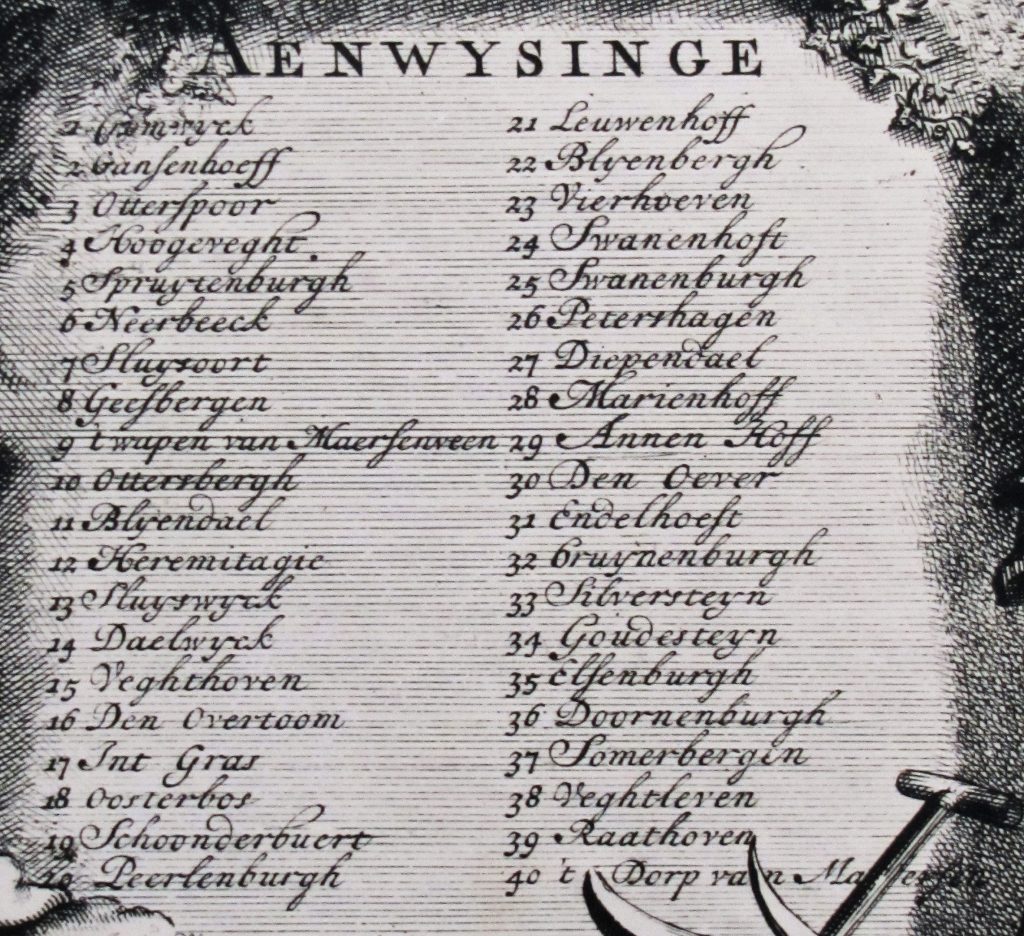 AENWYSINGE
1 Cromwyck
2 Gansenhoeff
3 Otterspoor
4 Hoogeveght.
5 Spruytenburgh
6 Neerbeeck
7 Sluysoort
8 Geesbergen
9 't wapen van Maersenveen
10 Ottersbergh
11 Blyendael
12 Heremitagie
13 Sluyswyck
14 Daelwyck
15 Veghthoven
16 Den Overtoom
17 Int Gras
18 Oosterbos
19 Schoonderbuert
20 Peerlenburgh
21 Leuwenhoff
22 Blyenbergh
23 Vierhoeven
24 Swanenhoft
25 Swanenburgh
26 Petershagen
27 Diependael
28 Marienhoff
29 Annen Hoff
30 Den Oever
31 Endelhoeft
32 Cruynenburgh
33 Silversteyn
34 Goudesteyn
35 Elsenburgh
36 Doornenburgh
37 Somerbergen
38 Veghtleven
39 Raathoven
40 't Dorp van